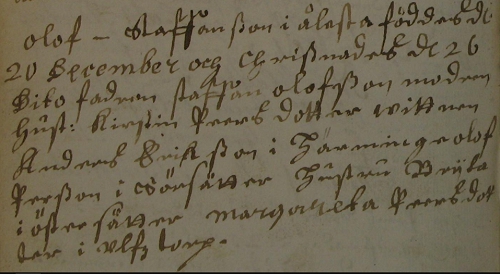 Olof – Staffansson i Ålesta föddes de
20 December och Christnades de 26
Dito fadren Staffan olofsson modren
hust: Kirstin Peersdotter wittnen
Anders Erikson i Härminge olof
Person i Sörsätter hustru Bryta
i östersätter margareta Peersdot
ter i Ulfztorp.